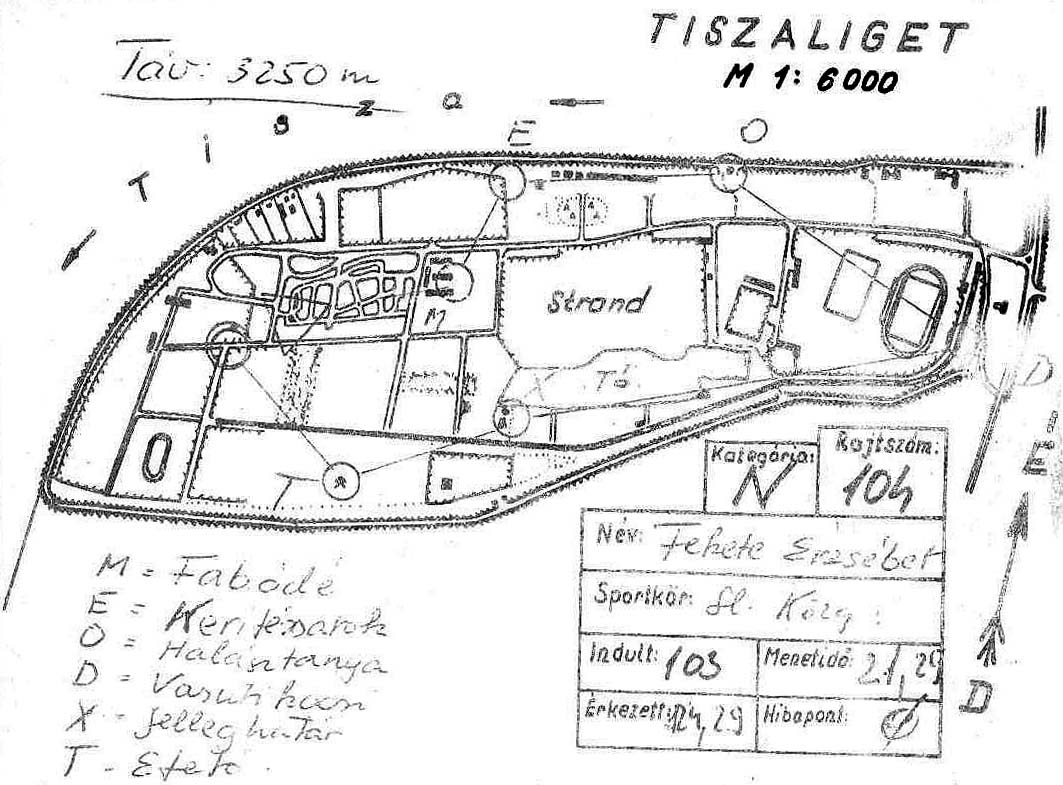 TISZALIGET
M 1: 6000
Táv: 3250 m
T i s z a
E
O
M
Strand
X
Tó
T
D
É
D
Kategória:
N
Rajtszám:
104
Név: Fekete Erzsébet
Sportkör: Sl. Közg.
Indult: 103
Menetidő: 21,29
Érkezett: 124,29
Hibapont: 0
M = Fabódé
E = Kerítéssarok
O = Halásztanya
D = Vasúti kocsi
X - Jelleghatár
T - Etető